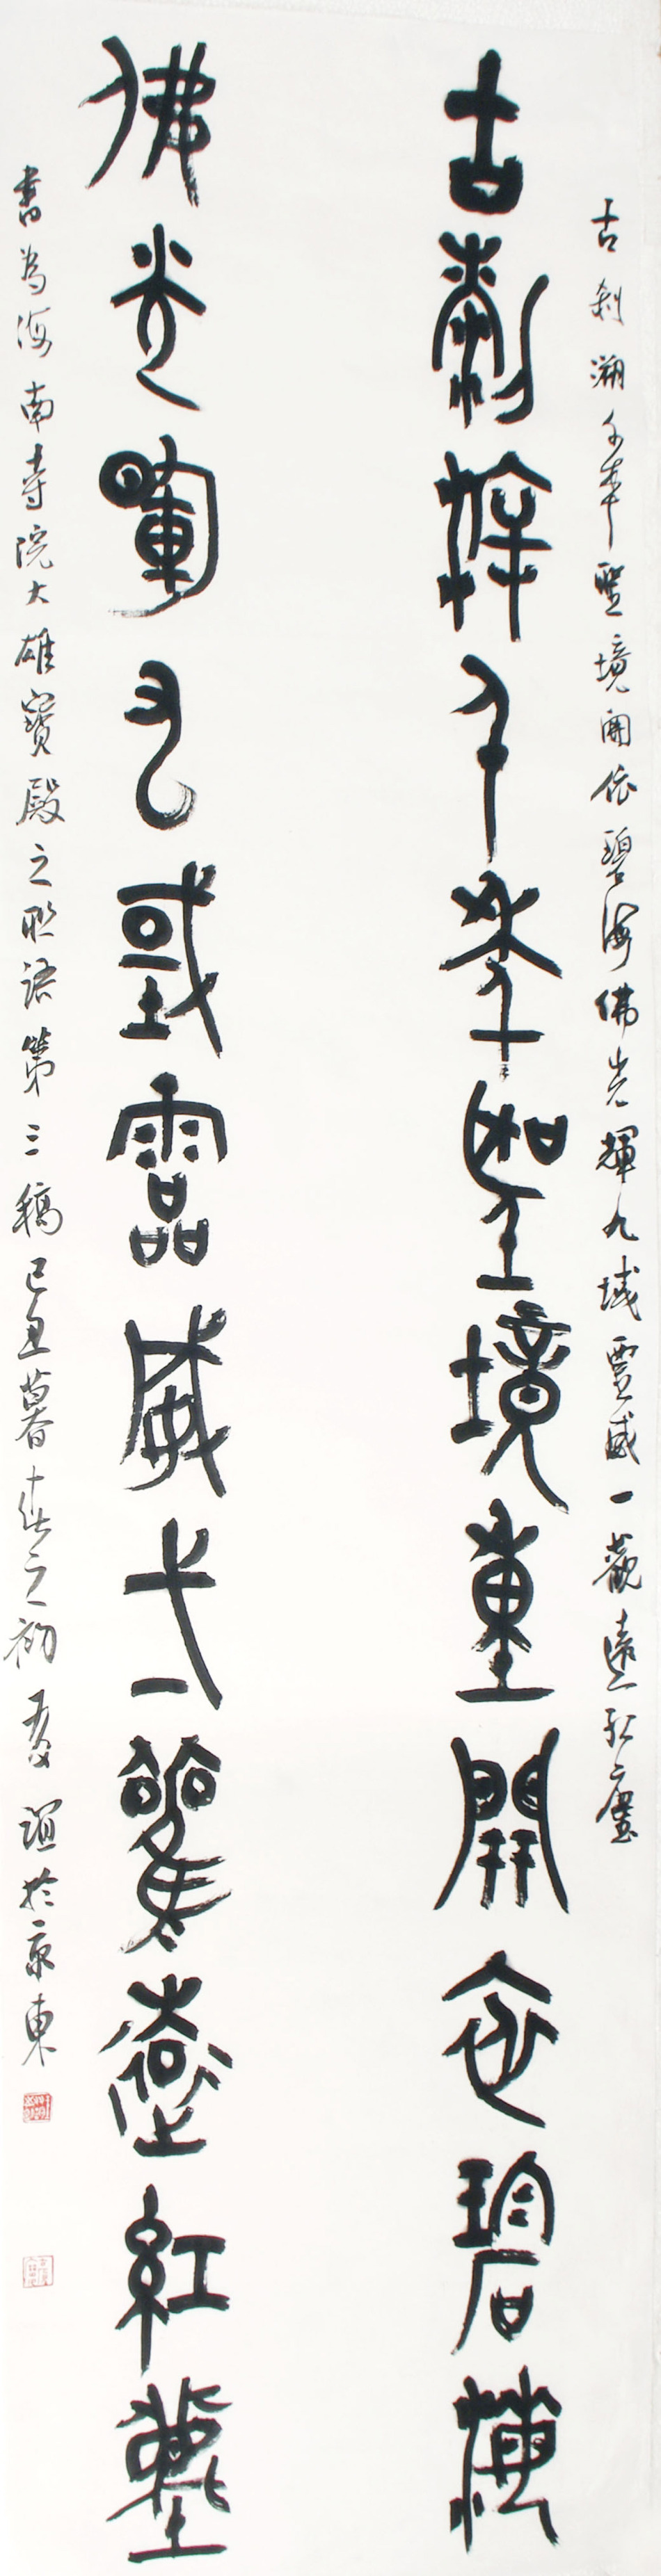 古刹溯千年聖境開依碧海佛光輝九域靈威一觀遠紅塵
古刹溯千年聖境重開依碧海
佛光輝九或靈威弌觀遠紅塵
書為海南寺院大雄寶殿之聯語第三稿己丑暮春之初 誼於京東